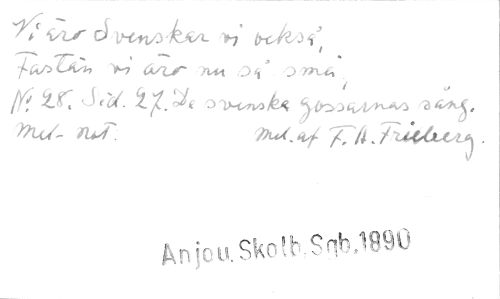 Vi äro Svenskar vi också,
Fastän vi äro nu så små,
N: 28. Sid. 27. De svenska gossarnas sång.
Med not. Mel. af F. A. Frieberg.
Anjou. Skolb. Sgb. 1890